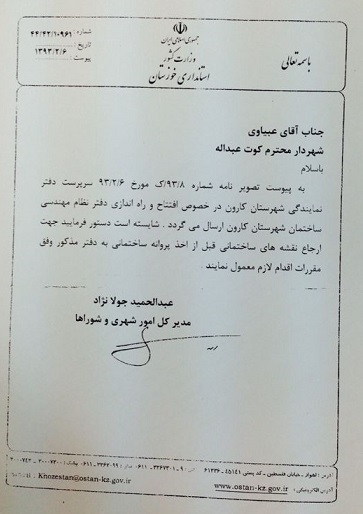 جمهوری اسلامی ایران
وزارت کشور
استانداری خوزستان
باسمه تعالی
شماره: ۴۴/۴۲/۱۰۹۶۱
تاریخ: ۱۳۹۳/۲/۶
پیوست:
جناب آقای عبیاوی
شهردار محترم کوت عبداله
باسلام
به پیوست تصویر نامه شماره ۹۳/۸/ک مورخ ۹۳/۲/۶ سرپرست دفتر
نمایندگی شهرستان کارون در خصوص افتتاح و راه اندازی دفتر نظام مهندسی
ساختمان شهرستان کارون ارسال می گردد . شایسته است دستور فرمایید جهت
ارجاع نقشه های ساختمانی قبل از اخذ پروانه ساختمانی به دفتر مذکور وفق
مقررات اقدام لازم معمول نمایند
عبدالحمید جولا نژاد
مدیر کل امور شهری و شوراها
آدرس: اهواز - خیابان فلسطین - کد پستی ۴۵۱۴۱-۶۱۳۳۶
آدرس الکترونیکی: www.ostan-kz.gov.ir Khozestan@ostan-kz.gov.ir